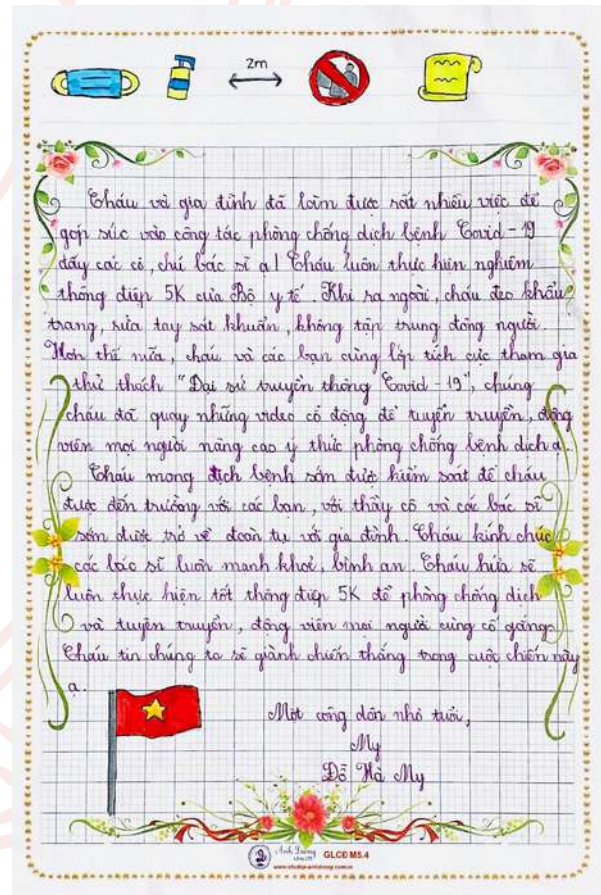 2m
Cháu và gia đình đã làm được rất nhiều việc để
góp sức vào công tác phòng chống dịch bệnh Covid - 19
đấy các cô, chú bác sĩ ạ! Cháu luôn thực hiện nghiêm
thông điệp 5K của Bộ y tế. Khi ra ngoài, cháu đeo khẩu
trang, rửa tay sát khuẩn, không tập trung đông người.
Hơn thế nữa, cháu và các bạn cùng lớp tích cực tham gia
thử thách "Đại sứ truyền thông Covid - 19", chúng
cháu đã quay những video cổ động để tuyên truyền, động
viên mọi người nâng cao ý thức phòng chống bệnh dịch ạ.
Cháu mong dịch bệnh sớm được kiểm soát để cháu
được đến trường với các bạn, với thầy cô và các bác sĩ
sớm được trở về đoàn tụ với gia đình. Cháu kính chúc
các bác sĩ luôn mạnh khoẻ, bình an. Cháu hứa sẽ
luôn thực hiện tốt thông điệp 5K để phòng chống dịch
và tuyên truyền, động viên mọi người cùng cố gắng.
Cháu tin chúng ta sẽ giành chiến thắng trong cuộc chiến này
ạ.
Một công dân nhỏ tuổi,
My
Đỗ Hà My
Ánh Dương
GLCĐ M5.4